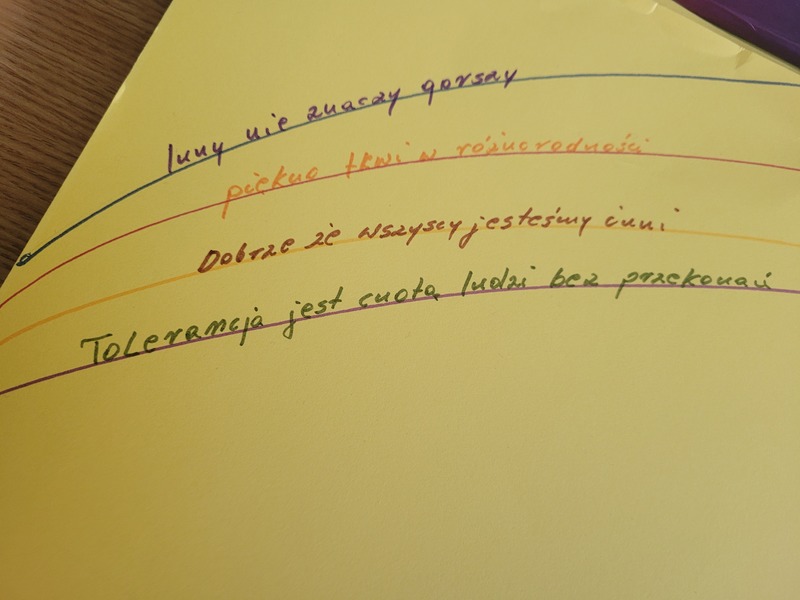 Inny nie znaczy gorszy
piękno tkwi w różnorodności
Dobrze że wszyscy jesteśmy inni
Tolerancja jest cnotą ludzi bez przekonań